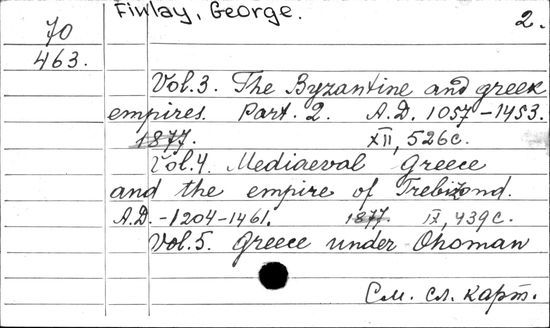 Finlay, George.
2.
70
463.
Vol.3. The Byzantine and greek
empires. Part. 2. A.D. 1057-1453.
1877. XII, 526c.
Vol.4. Mediaeval Greece
and the empire of Trebizond.
A.D.-1204-1461. 1877. IX, 439c.
Vol.5. Greece under Ohoman
См. сл. карт.